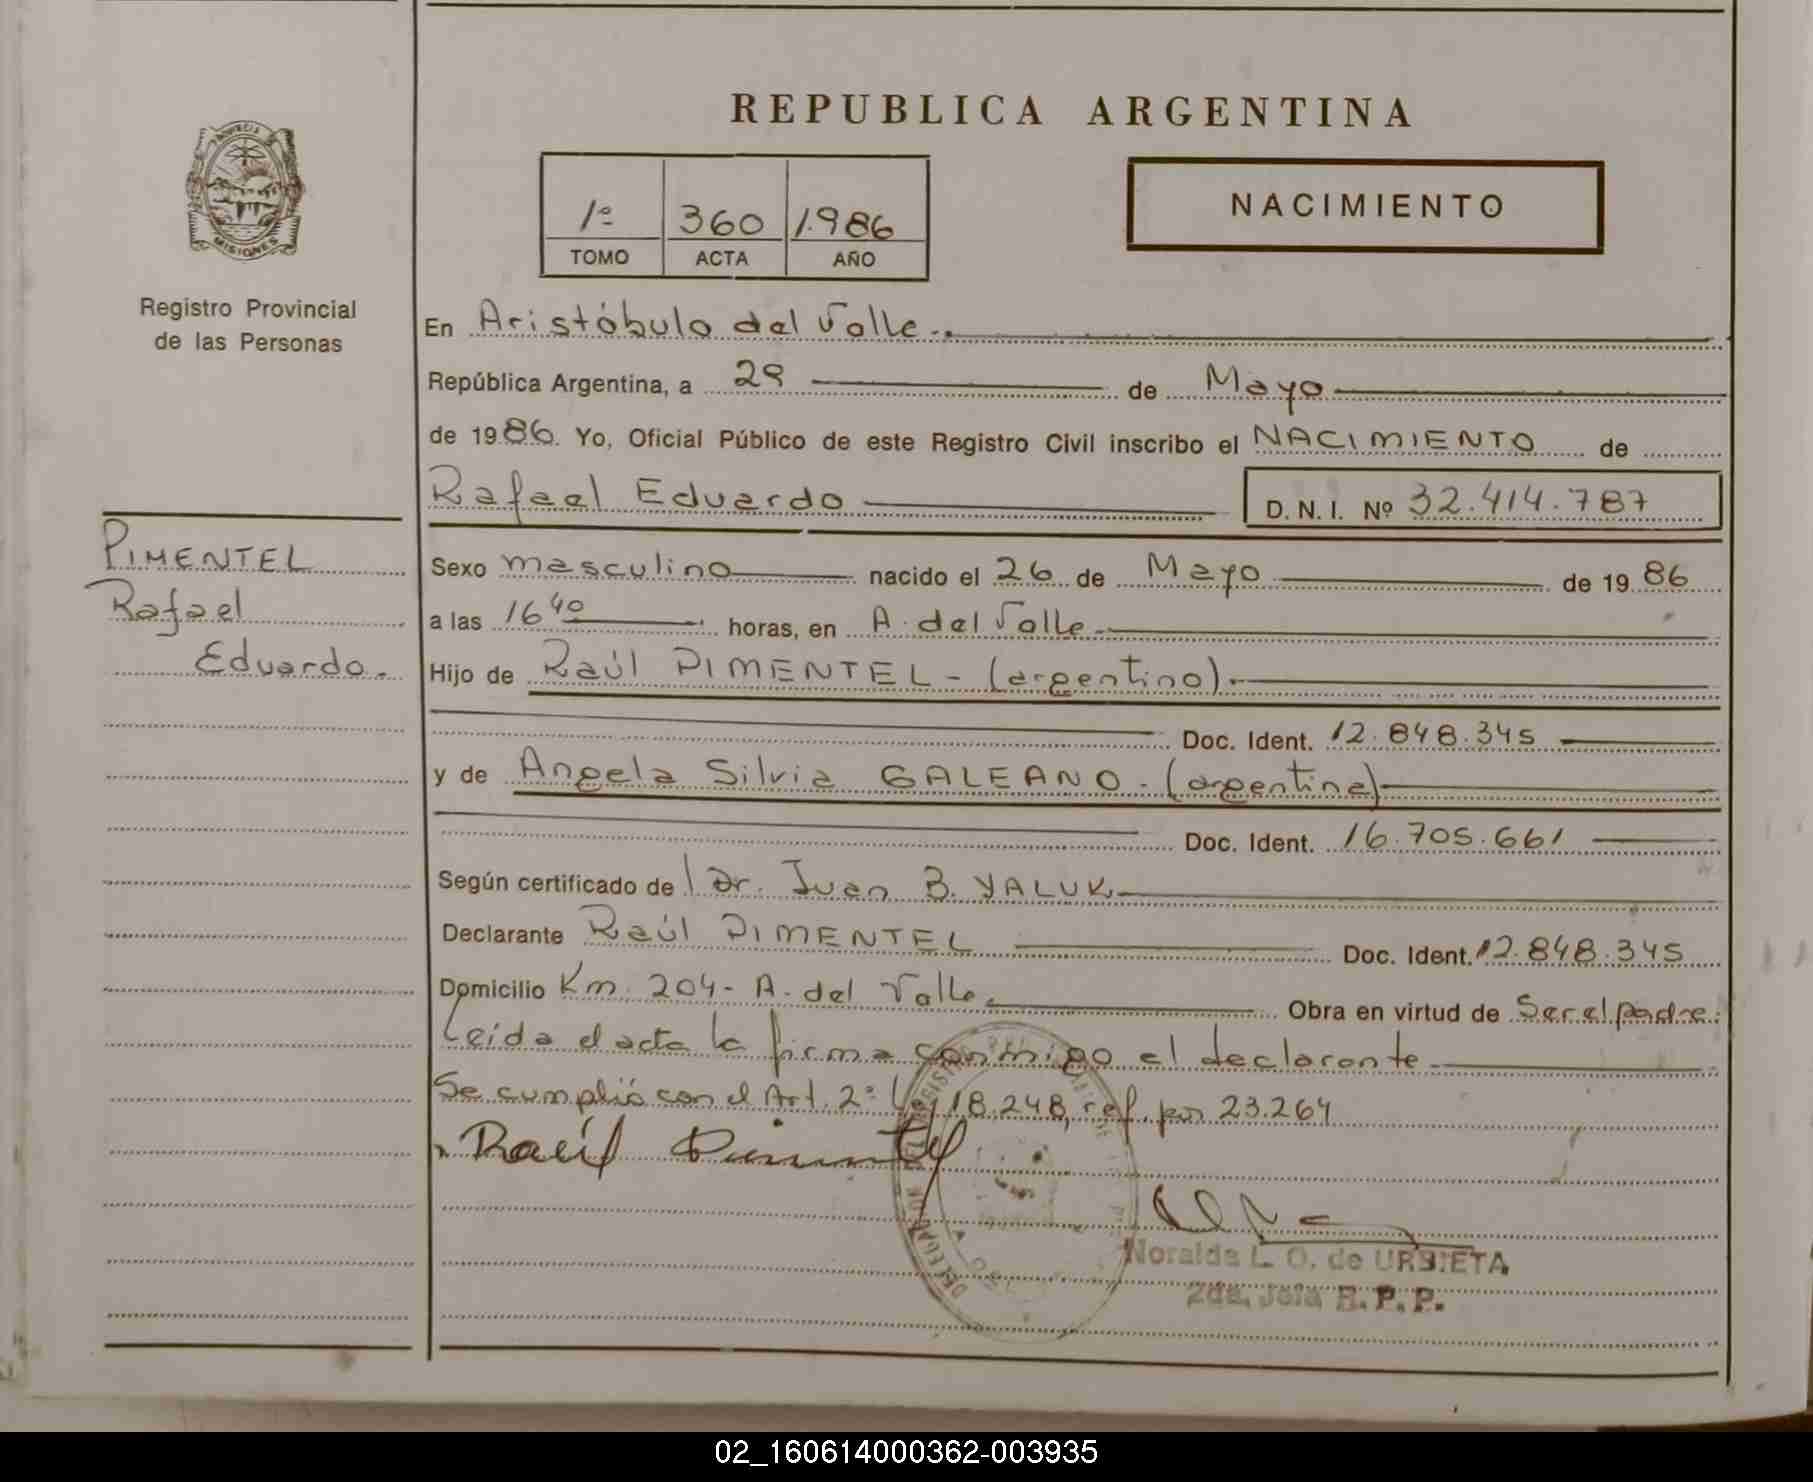 REPUBLICA ARGENTINA
PROVINCIA
MISIONES
Registro Provincial
de las Personas
1º 360 1.986
TOMO ACTA AÑO
NACIMIENTO
En Aristóbulo del Valle.
República Argentina, a 29 de Mayo
de 1986. Yo, Oficial Público de este Registro Civil inscribo el NACIMIENTO de
Rafael Eduardo D.N.I. Nº 32.414.787
PIMENTEL
Rafael
Eduardo.
Sexo masculino nacido el 26 de Mayo de 1986
a las 16 40 horas, en A. del Valle
Hijo de Raúl PIMENTEL - (argentino).
Doc. Ident. 12.848.345
y de Angela Silvia GALEANO - (argentina)
Doc. Ident. 16.705.661
Según certificado de Dr. Juan B. YALUK
Declarante Raúl PIMENTEL Doc. Ident. 12.848.345
Domicilio Km. 204 - A. del Valle Obra en virtud de Ser el padre.
Leída el acta la firma conmigo el declarante
Se cumplió con el Art. 2º Ley 18.248, ref. por 23.264
Raúl Pimentel
Noralda L. O. de URBIETA
2da. Jefa R.P.P.
02_160614000362-003935